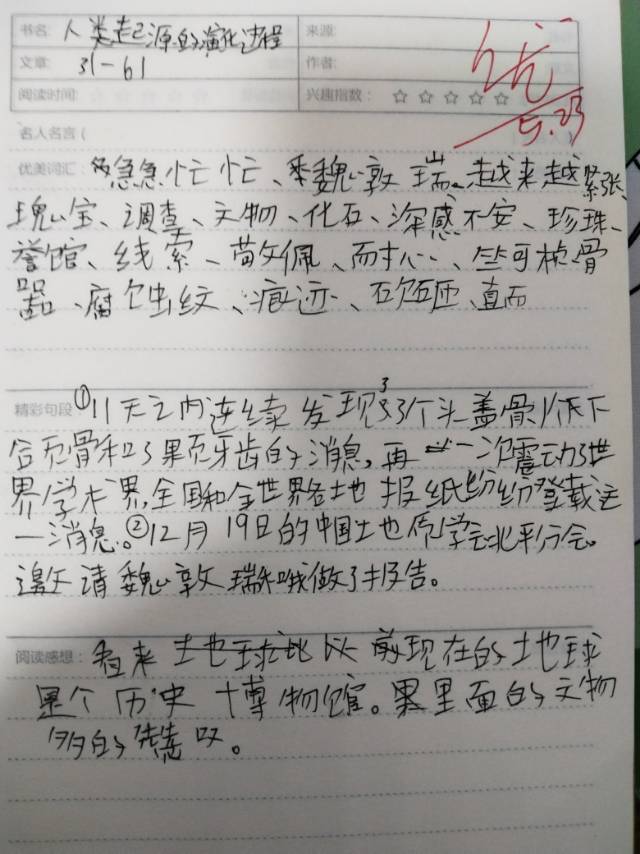 书名: 人类起源的演化过程
来源:
文章: 31-61
作者:
阅读时间:
兴趣指数: ☆☆☆☆☆
优
5.23
名人名言(
优美词汇: 急急忙忙、魏敦瑞、越来越紧张、
瑰宝、调查、文物、化石、深感不安、珍珠、
誉馆、线索、敬佩、耐心、坐可桢骨
器、腐蚀纹、痕迹、砍砸、直而
精彩句段 ①11天之内连续发现3个头盖骨1个下
合页骨和3果页牙齿的消息,再一次震动了世
界学术界,全国和全世界各地报纸纷纷登载这
一消息。②12月19日的中国土也质学会北平分会。
邀请魏敦瑞和我做了报告。
阅读感想: 看来地球比以前现在的地球
是个历史博物馆。里面的文物
多的